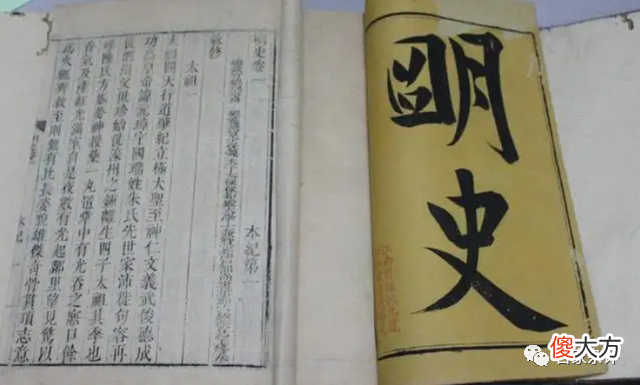 明史
明史卷一
本紀第一
敕修
太祖一
太祖開天行道肇紀立極大聖至神仁文義武俊德成
功高皇帝諱元璋字國瑞姓朱氏先世家沛徙句容再
徙泗州父世珍始徙濠州之鍾離生四子太祖其季也
母陳氏方娠夢神授藥一丸置掌中有光吞之寤口餘
香氣及產紅光滿室自是夜數有光起鄰里望見驚以
為火輒奔救至則無有比長姿貌雄傑奇骨貫頂志意
本紀
傻大方